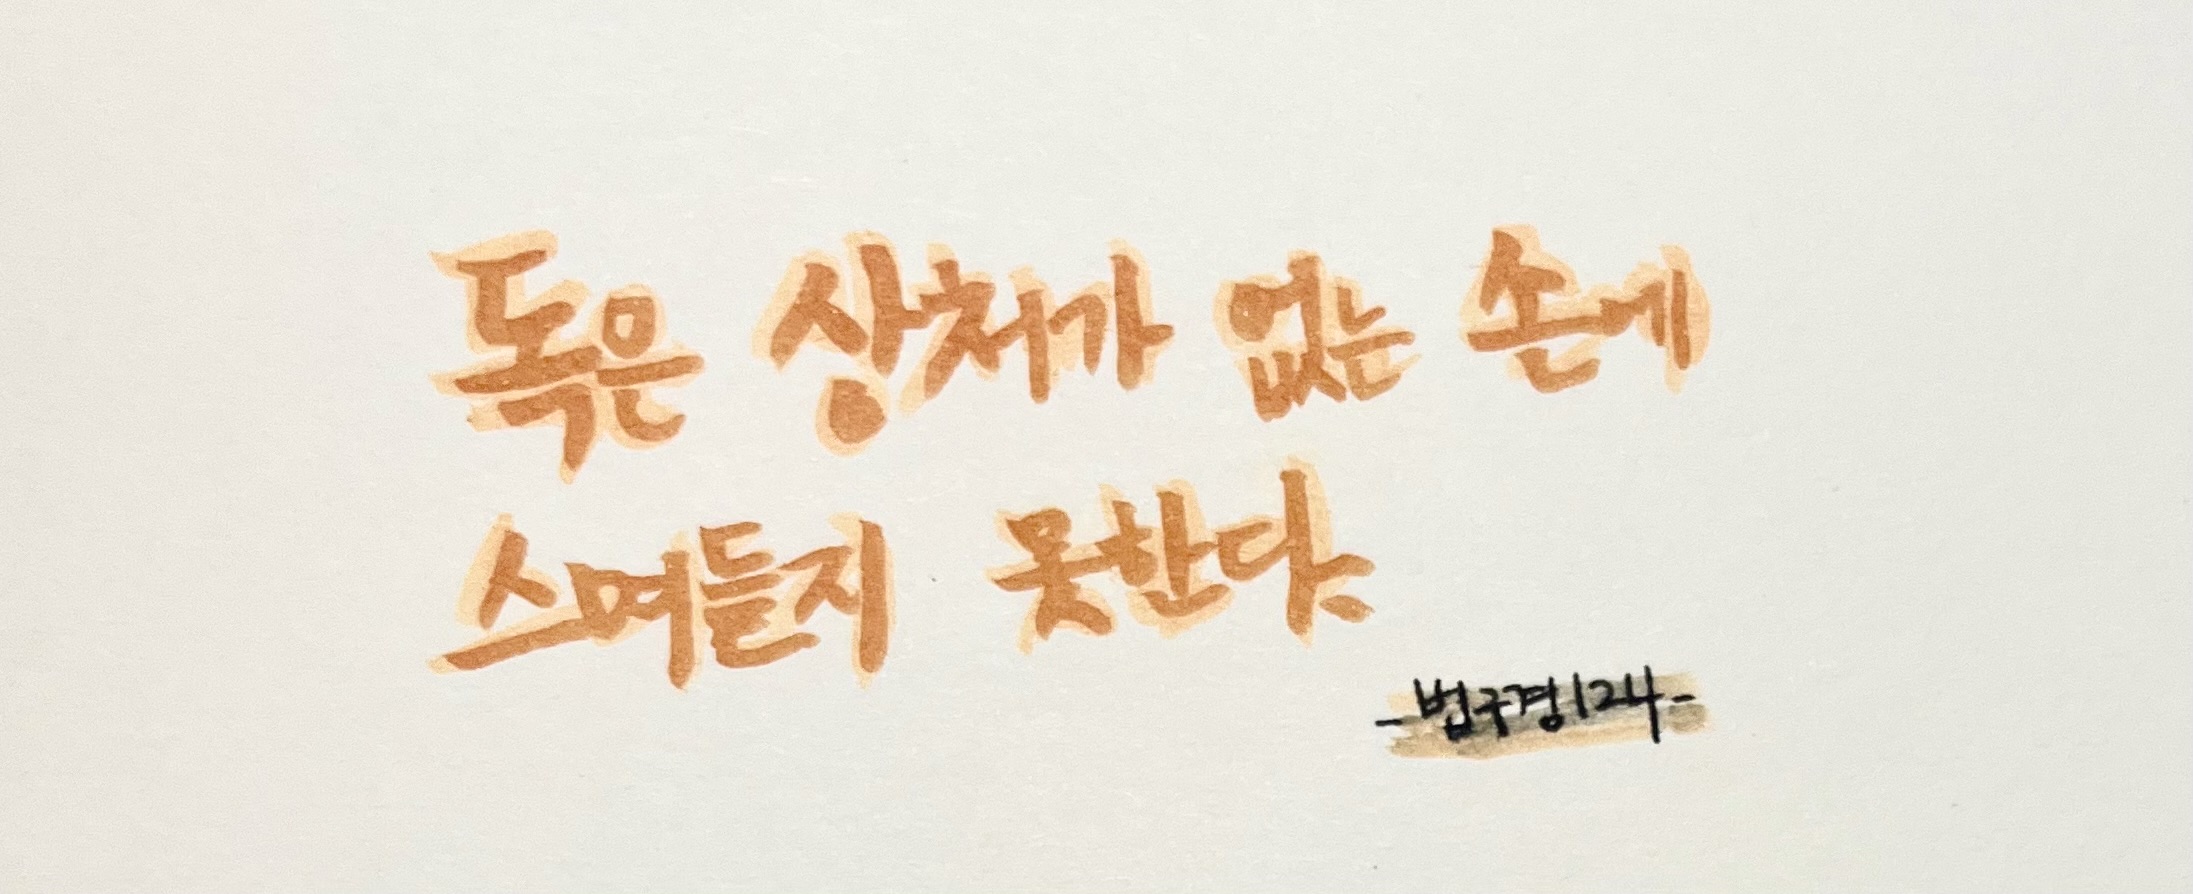 독은 상처가 없는 손에
스며들지 못한다.
-법구경124-